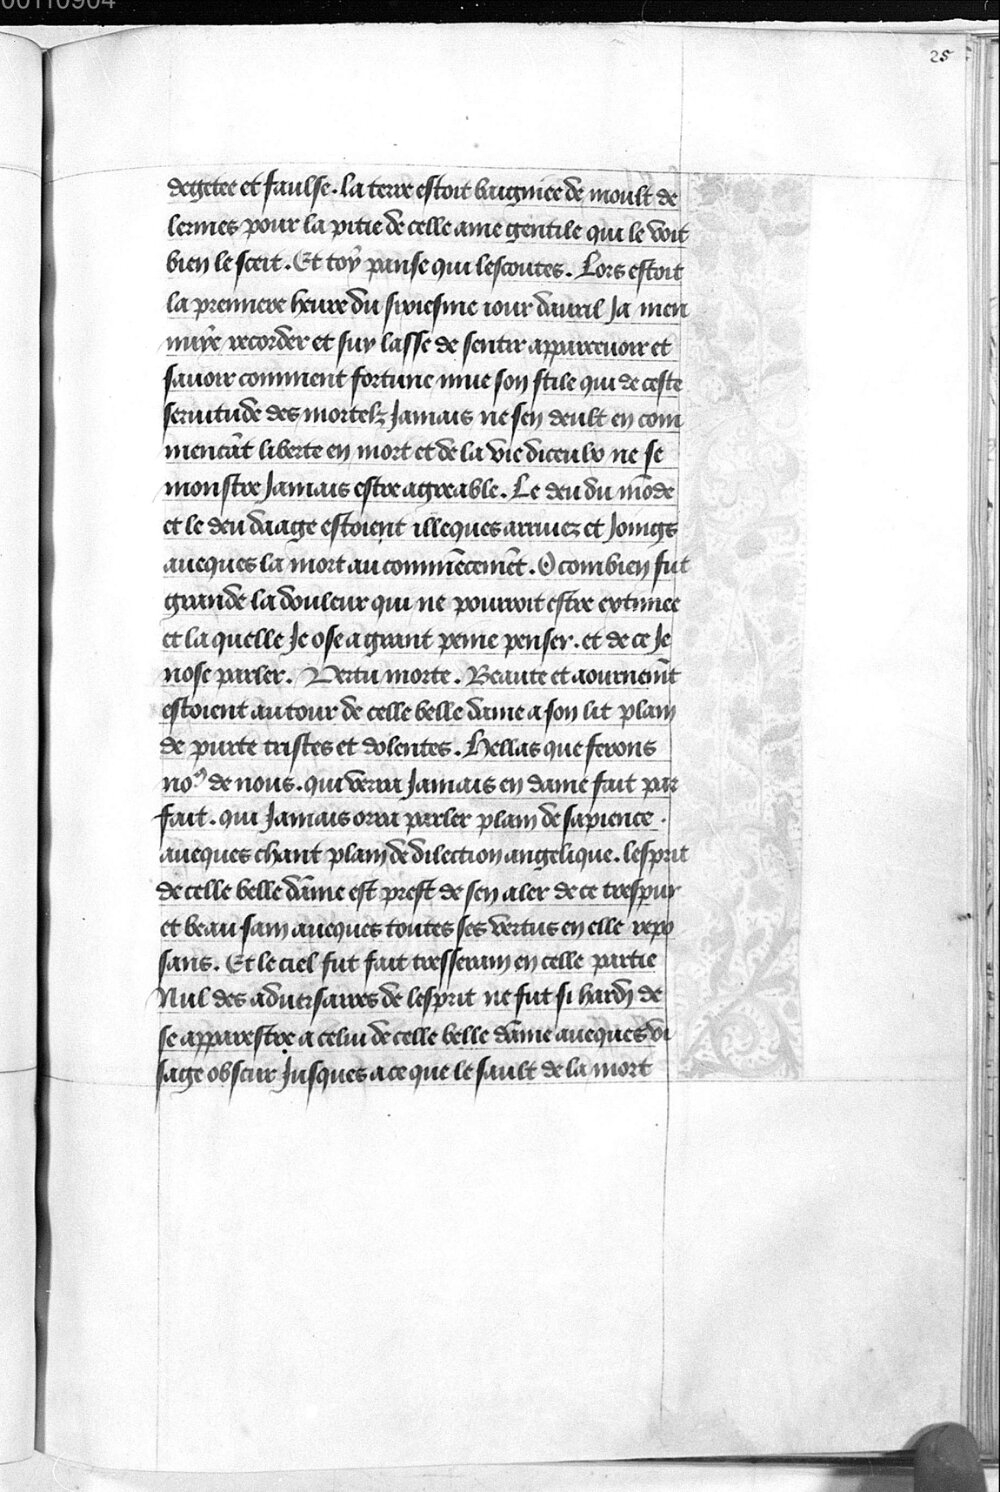 00110904
25
degetee et faulse. La terre estoit baignee de moult de
lermes pour la pitie de celle ame gentile qui le voit
bien le sceit. Et toy panse qui lescoutes. Lors estoit
la premiere heure du sixiesme iour dauril Ja men
nuye recorder et suy lasse de sentir apparcevoir et
sauoir comment fortune mue son stile qui de ceste
seruitude des mortelz Jamais ne sen deult en com
mencãt liberte en mort et de la vie diceulx ne se
monstre Jamais estre agreable. Le deu du mõde
et le deu daage estoient illeques arriuez et Joings
aueques la mort au commẽcemẽt. O combien fut
grande la douleur qui ne pourroit estre extimee
et la quelle Je ose a grant peine penser. et de ce Je
nose parler. Vertu morte. Beaute et aournemẽt
estoient autour de celle belle dame a son lit plain
de purte tristes et dolentes. Hellas que ferons
no⁹ de nous. qui verra Jamais en dame fait par
fait. qui Jamais orra parler plain de sapience.
aueques chant plain de dilection angelique. lesprit
de celle belle dãme est prest de sen aler de ce trespur
et beau sain aueques toutes ses vertus en elle repo
sans. Et le ciel fut fait tresserain en celle partie
Nul des aduersaires de lesprit ne fut si hardy de
se apparestre a celui de celle belle dãme aueques vi
sage obscur Jusques a ce que le sault de la mort